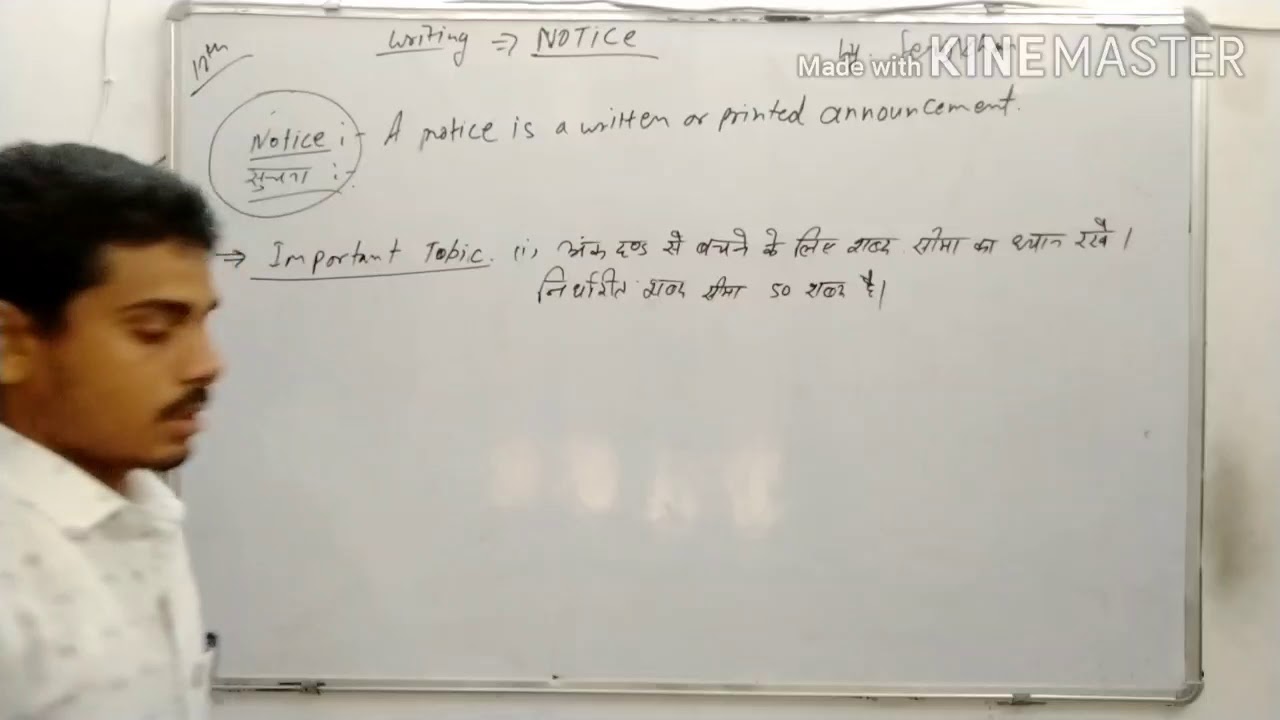 12th
writing ⇒ NOTICE
by
Made with KINEMASTER
Notice :- A notice is a written or printed announcement.
सुचना :-
→ Important Topic. (i) अंक दण्ड से बचने के लिए शब्द सीमा का ध्यान रखे।
निर्धारित शब्द सीमा 50 शब्द है।